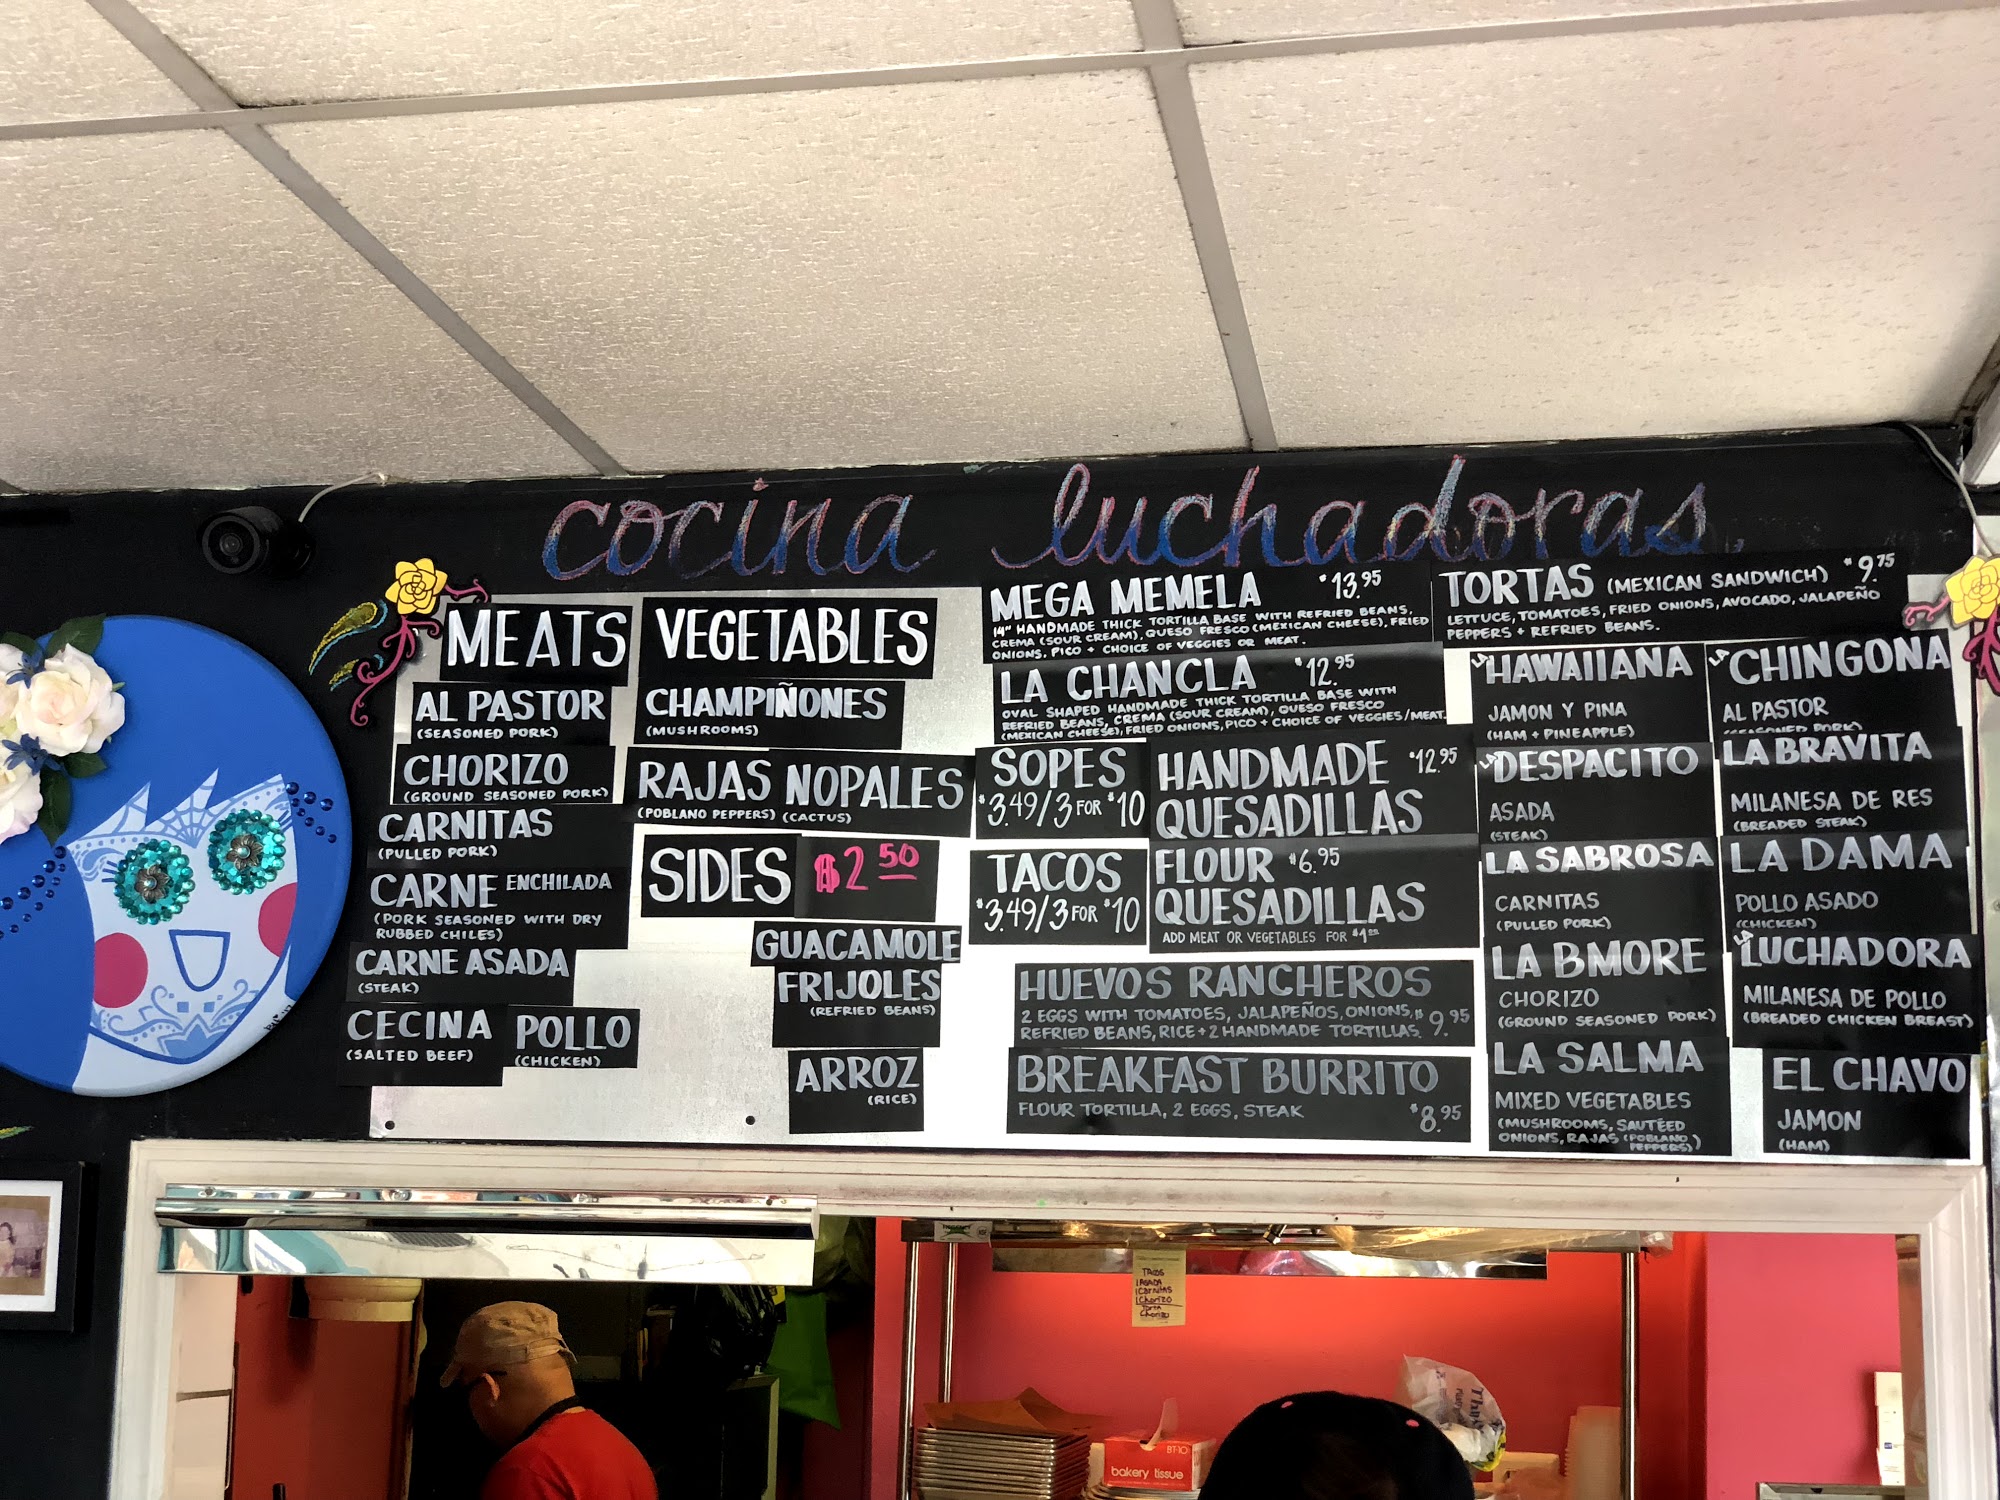 cocina luchadoras
MEATS
AL PASTOR
(SEASONED PORK)
CHORIZO
(GROUND SEASONED PORK)
CARNITAS
(PULLED PORK)
CARNE ENCHILADA
(PORK SEASONED WITH DRY
RUBBED CHILES)
CARNE ASADA
(STEAK)
CECINA
(SALTED BEEF)
POLLO
(CHICKEN)
VEGETABLES
CHAMPIÑONES
(MUSHROOMS)
RAJAS
(POBLANO PEPPERS)
NOPALES
(CACTUS)
SIDES $2 50
GUACAMOLE
FRIJOLES
(REFRIED BEANS)
ARROZ
(RICE)
MEGA MEMELA $13.95
14" HANDMADE THICK TORTILLA BASE WITH REFRIED BEANS,
CREMA (SOUR CREAM), QUESO FRESCO (MEXICAN CHEESE), FRIED
ONIONS, PICO + CHOICE OF VEGGIES OR MEAT.
LA CHANCLA $12.95
OVAL SHAPED HANDMADE THICK TORTILLA BASE WITH
REFRIED BEANS, CREMA (SOUR CREAM), QUESO FRESCO
(MEXICAN CHEESE), FRIED ONIONS, PICO + CHOICE OF VEGGIES/MEAT.
SOPES
$3.49/3 FOR $10
TACOS
$3.49/3 FOR $10
HANDMADE $12.95
QUESADILLAS
FLOUR $6.95
QUESADILLAS
ADD MEAT OR VEGETABLES FOR $1.00
HUEVOS RANCHEROS
2 EGGS WITH TOMATOES, JALAPEÑOS, ONIONS,
REFRIED BEANS, RICE + 2 HANDMADE TORTILLAS. $9.95
BREAKFAST BURRITO
FLOUR TORTILLA, 2 EGGS, STEAK $8.95
TORTAS (MEXICAN SANDWICH) $9.75
LETTUCE, TOMATOES, FRIED ONIONS, AVOCADO, JALAPEÑO
PEPPERS + REFRIED BEANS.
LA HAWAIIANA
JAMON Y PINA
(HAM + PINEAPPLE)
LA DESPACITO
ASADA
(STEAK)
LA SABROSA
CARNITAS
(PULLED PORK)
LA BMORE
CHORIZO
(GROUND SEASONED PORK)
LA SALMA
MIXED VEGETABLES
(MUSHROOMS, SAUTÉED
ONIONS, RAJAS (POBLANO
PEPPERS))
LA CHINGONA
AL PASTOR
(SEASONED PORK)
LA BRAVITA
MILANESA DE RES
(BREADED STEAK)
LA DAMA
POLLO ASADO
(CHICKEN)
LA LUCHADORA
MILANESA DE POLLO
(BREADED CHICKEN BREAST)
EL CHAVO
JAMON
(HAM)
TACOS
1 ASADA
1 Carnitas
1 Chorizo
Torta
Chorizo
BT-10
bakery tissue